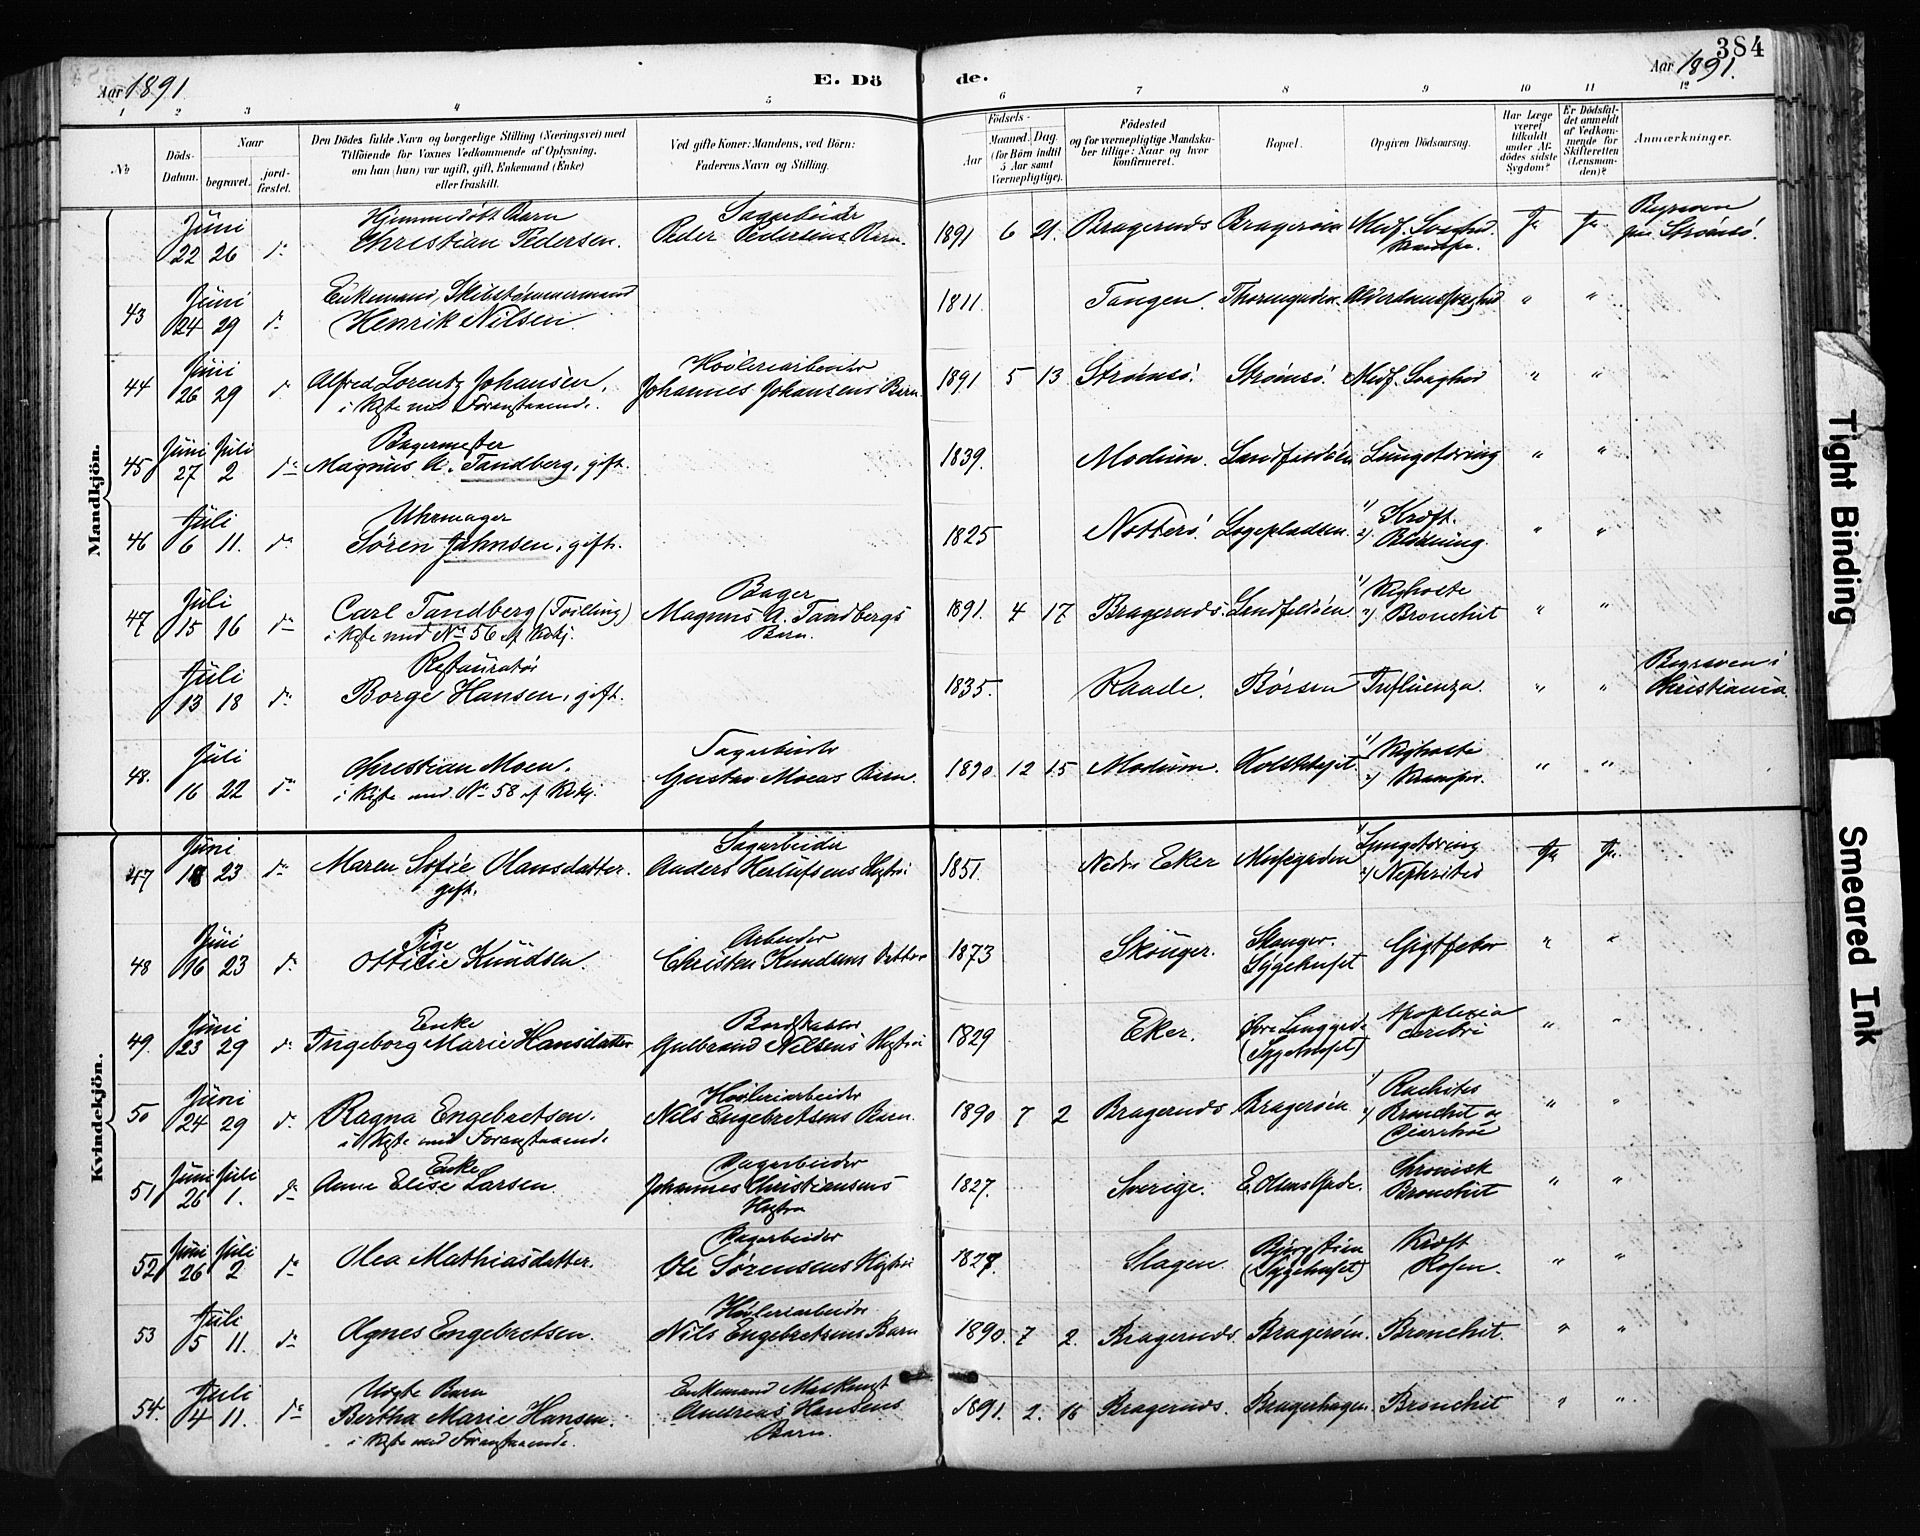 384
Aar 1891.
E. Dö
de.
Aar 1891.
1 2 3 4 5 6 7 8 9 10 11 12
No
Döds-Datum.
Naar
begravet.
jord-fæstet.
Den Dödes fulde Navn og borgerlige Stilling (Næringsvei) med
Tilföiende for Voxnes Vedkommende af Oplysning,
om han (hun) var ugift, gift, Enkemand (Enke)
eller fraskilt.
Ved gifte Koner: Mandens, ved Börn:
Faderens Navn og Stilling.
Födsels-
Aar
Maaned. Dag.
(for Börn indtil
5 Aar samt
Værnepligtige).
Födested
og for værnepligtige Mandska-
ber tillige: Naar og hvor
konfirmeret.
Bopæl.
Opgiven Dödsaarsag.
Har Læge
været
tilkaldt
under Af-
dödes sidste
Sygdom?
Er Dödsfal-
det anmeldt
af Vedkom-
mende for
Skifteretten
(Lensman-
den)?
Anmærkninger.
Mandkjön.
Juni 22 26 do Hjemmedøbt Barn Christian Pedersen. Sagarbeider Peder Pedersens Barn. 1891 6 21. Bragernæs Bragerøen Medf. Svaghed. Krampe. Ja Ja. Begraven paa Strømsö.
43 Juni 24 29 do Enkemand, Skibstømmermand Henrik Nilsen. 1811. Tangen. Alderdomssvaghed " "
44 Juni 26 29 do Alfred Lorentz Johansen. i Kiste med Foranstaaende. Høvleriarbeider Johannes Johansens Barn. 1891 5 13 Strømsö. Strømsö. Medf. Svaghed " "
45 Juni 27 Juli 2 do Bagermester Magnus A. Tandberg, gift. 1839. Modum. Landfaldöen Lungetæring " "
46 Juli 6 11. do Uhrmager Søren Jahnsen, gift. 1825 Nøtterö. Løgepladsen. 1) Kræft. 2) Blødning. " "
47 Juli 15 16 do Carl Tandberg (Tvilling) i Kiste med No 56 af Kvkj. Bager Magnus A. Tandbergs Barn. 1891. 4 17 Bragernæs. Landfaldöen 1) Kighoste 2) Bronchit " "
Juli 13 18 do Restauratör Borge Hansen, gift. 1835. Raade. Börsen Influenza. " " Begraven i Christiania.
48. Juli 16 22 do Christian Moen. i Kiste med No 58 af Kvkj. Sagarbeider Gustav Moens Barn. 1890 12 15 Modum. 1) Kighoste 2) Krampe. " "
Kvindekjön.
47 Juni 18 23 do Maren Sofie Hansdatter. gift. Sagarbeider Anders Herlufsens Hustru 1851. Nedre Eker 1) Lungetæring 2) Nephritis Ja Ja.
48 Juni 16 23 do Pige Ottilie Knudsen. Arbeider Christen Knudsens Datter 1873 Skouger. Skouger. Sygehuset Gigtfeber " "
49. Juni 23 29 do Enke Ingeborg Marie Hansdatter Bordstabler Gulbrand Nilsens Hustru 1829 Eker. (Sygehuset) Apoplexia cerebri " "
50 Juni 24 29 do Ragna Engebretsen. i Kiste med Foranstaaende Høvleriarbeider Nils Engebretsens Barn. 1890 7 2 Bragernæs Bragerøen 1) Rachites 2) Bronchit og Diarrhöe " "
51 Juni 26 Juli 1. do Enke Anne Elise Larsen. Sagarbeider Johannes Christiansens Hustru 1827. Sverige. E. Olsens Gade. Chronisk Bronchit " "
52 Juni 26 Juli 2 do Olea Mathiasdatter. Sagarbeider Ole Sørensens Hustru 1827. Slagen. (Sygehuset) Kræft Rosen. " "
53 Juli 5 11. do Agnes Engebretsen. Høvleriarbeider Nils Engebretsens Barn 1890. 7 2. Bragernæs. Bragerøen. Bronchit. " "
54. Juli 4 11. do Uægte Barn Bertha Marie Hansen. i Kiste med Foranstaaende. Enkemand Andreas Hansens Barn. 1891. 2. 16 Bragernæs. Bragerhagen. Bronchit " "
Tight Binding
Smeared Ink